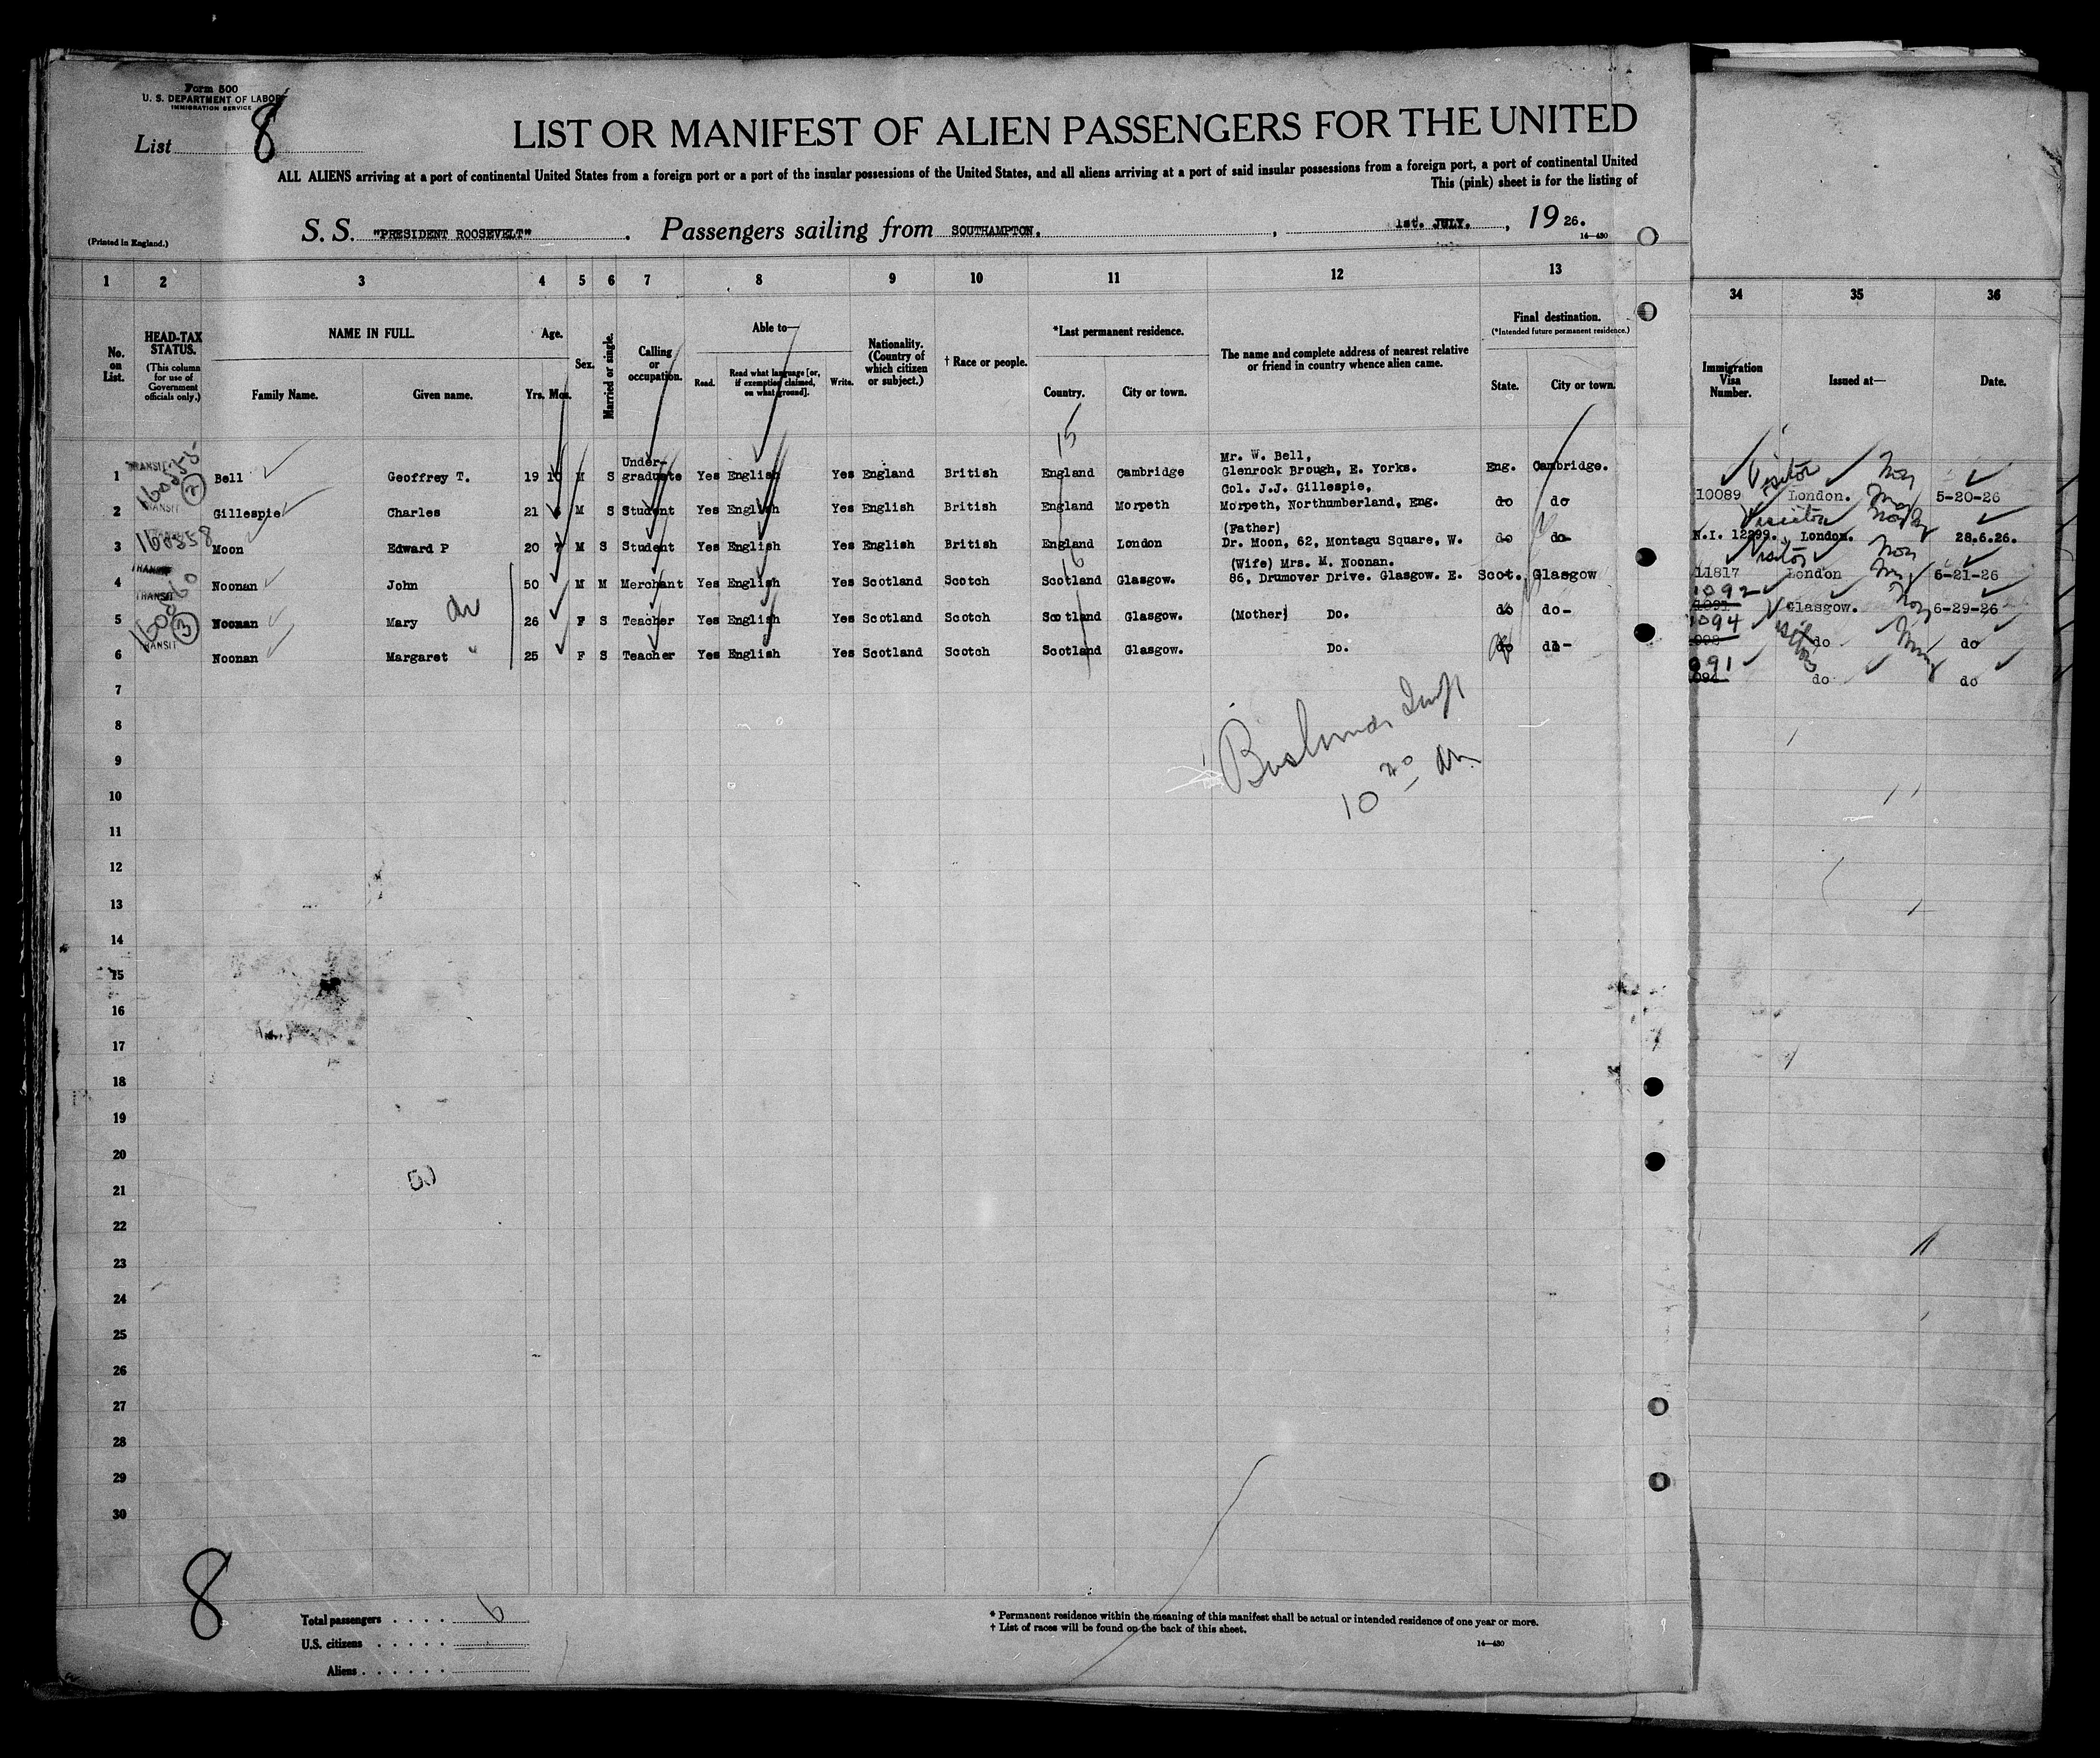 Form 500
U. S. DEPARTMENT OF LABOR
IMMIGRATION SERVICE
List 8
LIST OR MANIFEST OF ALIEN PASSENGERS FOR THE UNITED
ALL ALIENS arriving at a port of continental United States from a foreign port or a port of the insular possessions of the United States, and all aliens arriving at a port of said insular possessions from a foreign port, a port of continental United
This (pink) sheet is for the listing of
(Printed in England.)
S. S. "PRESIDENT ROOSEVELT" . Passengers sailing from SOUTHAMPTON. , 1st. JULY. , 19 26.
14—430
1 2 3 4 5 6 7 8 9 10 11 12 13 34 35 36
No. on List.
HEAD-TAX STATUS. (This column for use of Government officials only.)
NAME IN FULL.
Family Name. Given name.
Age.
Yrs. Mos.
Sex.
Married or single.
Calling or occupation.
Able to—
Read. Read what language [or, if exemption claimed, on what ground]. Write.
Nationality. (Country of which citizen or subject.)
† Race or people.
*Last permanent residence.
Country. City or town.
The name and complete address of nearest relative or friend in country whence alien came.
Final destination.
(*Intended future permanent residence.)
State. City or town.
Immigration Visa Number.
Issued at—
Date.
15
1 TRANSIT Bell Geoffrey T. 19 10 M S Under-graduate Yes English Yes England British England Cambridge Mr. W. Bell, Glenrock Brough, E. Yorks. Eng. Cambridge.
2 TRANSIT Gillespie Charles 21 M S Student Yes English Yes English British England Morpeth Col. J.J. Gillespie, Morpeth, Northumberland, Eng. do do
3 160358 Moon Edward P 20 7 M S Student Yes English Yes English British England London (Father) Dr. Moon, 62, Montagu Square, W. do do-
4 TRANSIT Noonan John 50 M M Merchant Yes English Yes Scotland Scotch Scotland Glasgow. (Wife) Mrs. M. Noonan. 86, Drumover Drive. Glasgow. E. Scot. Glasgow
5 TRANSIT Noonan Mary 26 F S Teacher Yes English Yes Scotland Scotch Scotland Glasgow. (Mother) Do. do do-
6 TRANSIT Noonan Margaret 25 F S Teacher Yes English Yes Scotland Scotch Scotland Glasgow. Do. do do-
10089 Visitor London. 5-20-26
N.I. 12299. Visitor London. 28.6.26.
11817 Visitor London 6-21-26
1092 Glasgow. 6-29-26
1094 do do
091 do do
7
8
9
10
11
12
13
14
15
16
17
18
19
20
21
22
23
24
25
26
27
28
29
30
50
8
Total passengers . . . . 6
U.S. citizens . . . . .
Aliens . . . . . .
* Permanent residence within the meaning of this manifest shall be actual or intended residence of one year or more.
† List of races will be found on the back of this sheet.
14—430